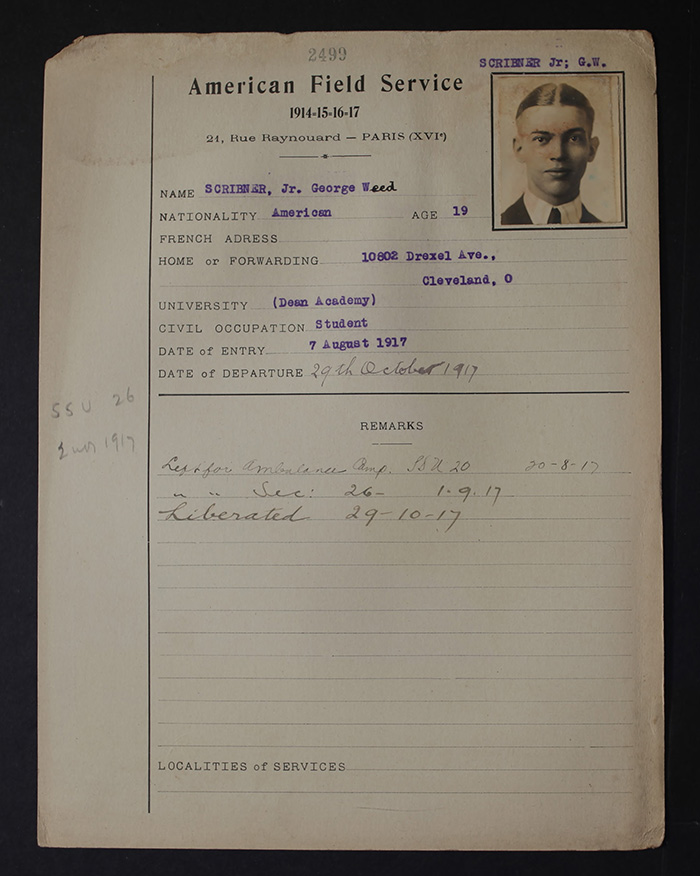 2499
SCRIBNER Jr; G.W.
American Field Service
1914-15-16-17
21, Rue Raynouard — PARIS (XVIe)
NAME SCRIBNER, Jr. George Weed
NATIONALITY American AGE 19
FRENCH ADRESS
HOME or FORWARDING 10802 Drexel Ave.,
Cleveland, O
UNIVERSITY (Dean Academy)
CIVIL OCCUPATION Student
DATE of ENTRY 7 August 1917
DATE of DEPARTURE 29th October 1917
SSU 26
1917
REMARKS
Left for Ambulance Camp. SSU 20 20-8-17
" " Sec: 26- 1.9.17
Liberated 29-10-17
LOCALITIES of SERVICES